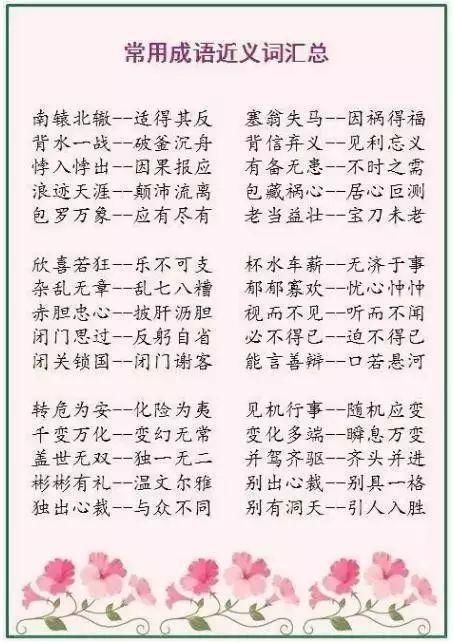 常用成语近义词汇总
南辕北辙--适得其反 塞翁失马--因祸得福
背水一战--破釜沉舟 背信弃义--见利忘义
悖入悖出--因果报应 有备无患--不时之需
浪迹天涯--颠沛流离 包藏祸心--居心叵测
包罗万象--应有尽有 老当益壮--宝刀未老
欣喜若狂--乐不可支 杯水车薪--无济于事
杂乱无章--乱七八糟 郁郁寡欢--忧心忡忡
赤胆忠心--披肝沥胆 视而不见--听而不闻
闭门思过--反躬自省 必不得已--迫不得已
闭关锁国--闭门谢客 能言善辩--口若悬河
转危为安--化险为夷 见机行事--随机应变
千变万化--变幻无常 变化多端--瞬息万变
盖世无双--独一无二 并驾齐驱--齐头并进
彬彬有礼--温文尔雅 别出心裁--别具一格
独出心裁--与众不同 别有洞天--引人入胜